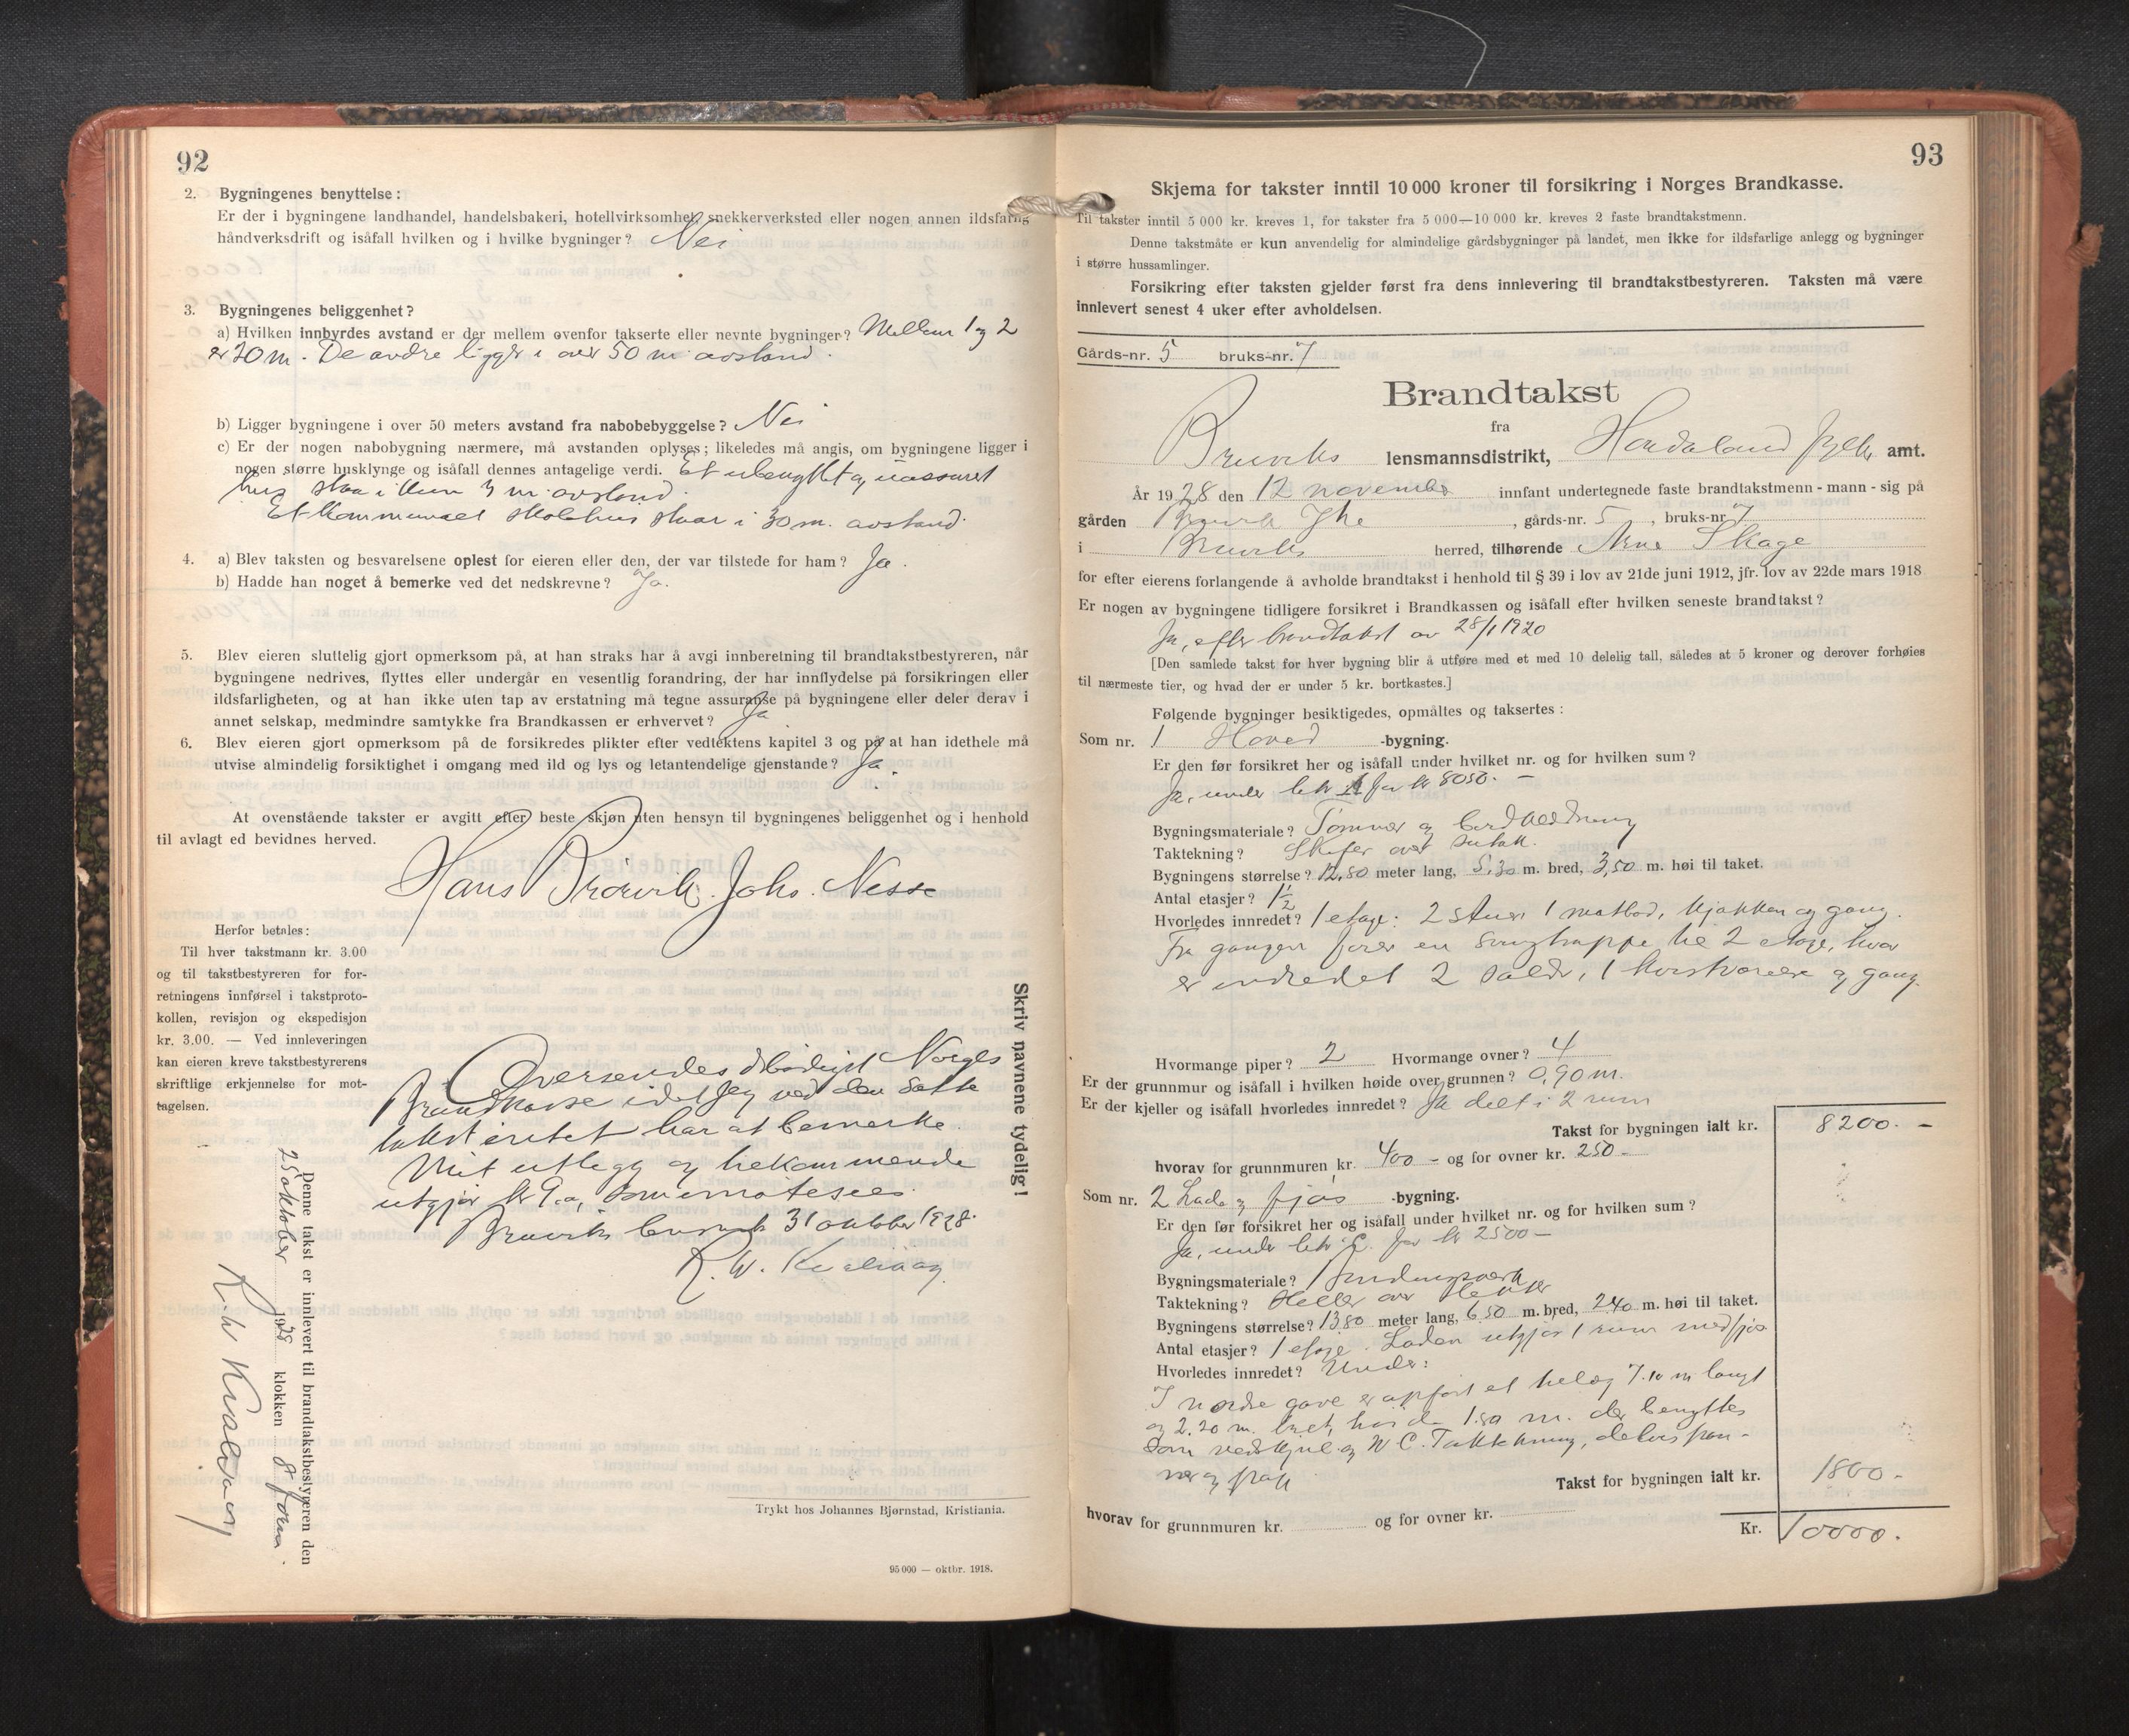 92
2. Bygningenes benyttelse:
Er der i bygningene landhandel, handelsbakeri, hotellvirksomhet, snekkerverksted eller nogen annen ildsfarlig
håndverksdrift og isåfall hvilken og i hvilke bygninger? Nei
3. Bygningenes beliggenhet?
a) Hvilken innbyrdes avstand er der mellem ovenfor takserte eller nevnte bygninger? Mellem 1 og 2
er 20 m. De andre ligger i over 50 m avstand.
b) Ligger bygningene i over 50 meters avstand fra nabobebyggelse? Nei
c) Er der nogen nabobygning nærmere, må avstanden oplyses; likeledes må angis, om bygningene ligger i
nogen større husklynge og isåfall dennes antagelige verdi. Et ubenyttet og uassureret
hus staar i kun 3 m. avstand.
Et kommunalt skolehus staar i 30 m. avstand.
4. a) Blev taksten og besvarelsene oplest for eieren eller den, der var tilstede for ham? Ja.
b) Hadde han noget å bemerke ved det nedskrevne? Ja.
5. Blev eieren sluttelig gjort opmerksom på, at han straks har å avgi innberetning til brandtakstbestyreren, når
bygningene nedrives, flyttes eller undergår en vesentlig forandring, der har innflydelse på forsikringen eller
ildsfarligheten, og at han ikke uten tap av erstatning må tegne assuranse på bygningene eller deler derav i
annet selskap, medmindre samtykke fra Brandkassen er erhvervet? Ja
6. Blev eieren gjort opmerksom på de forsikredes plikter efter vedtektens kapitel 3 og på at han idethele må
utvise almindelig forsiktighet i omgang med ild og lys og letantendelige gjenstande? Ja.
At ovenstående takster er avgitt efter beste skjøn uten hensyn til bygningenes beliggenhet og i henhold
til avlagt ed bevidnes herved.
Hans Bruvik. Johs. Nesse
Herfor betales:
Til hver takstmann kr. 3.00
og til takstbestyreren for for-
retningens innførsel i takstproto-
kollen, revisjon og ekspedisjon
kr. 3.00. — Ved innleveringen
kan eieren kreve takstbestyrerens
skriftlige erkjennelse for mot-
tagelsen.
Skriv navnene tydelig!
Oversendes Norges
Brandkasse idet jeg ved den satte
takst intet har at bemerke.
Mit utlegg og tilkommende
utgjør kr 9.00,
Bruvik 31 oktober 1928.
R. W.
Denne takst er innlevert til brandtakstbestyreren den
25 oktober 1928 klokken 8 form.
R. W.
Trykt hos Johannes Bjørnstad, Kristiania.
95 000 — oktbr. 1918.
93
Skjema for takster inntil 10 000 kroner til forsikring i Norges Brandkasse.
Til takster inntil 5 000 kr. kreves 1, for takster fra 5 000—10 000 kr. kreves 2 faste brandtakstmenn.
Denne takstmåte er kun anvendelig for almindelige gårdsbygninger på landet, men ikke for ildsfarlige anlegg og bygninger
i større hussamlinger.
Forsikring efter taksten gjelder først fra dens innlevering til brandtakstbestyreren. Taksten må være
innlevert senest 4 uker efter avholdelsen.
Gårds-nr. 5 bruks-nr. 7
Brandtakst
fra
Bruviks lensmannsdistrikt, Hordaland fylke amt.
År 1928 den 12 november innfant undertegnede faste brandtakstmenn - mann - sig på
gården Bruvik Ytre, gårds-nr. 5, bruks-nr 7
i Bruviks herred, tilhørende Arne Skage
for efter eierens forlangende å avholde brandtakst i henhold til § 39 i lov av 21de juni 1912, jfr. lov av 22de mars 1918
Er nogen av bygningene tidligere forsikret i Brandkassen og isåfall efter hvilken seneste brandtakst?
Ja, efter brandtakst av 28/1 1920
[Den samlede takst for hver bygning blir å utføre med et med 10 delelig tall, således at 5 kroner og derover forhøies
til nærmeste tier, og hvad der er under 5 kr. bortkastes.]
Følgende bygninger besiktigedes, opmåltes og taksertes:
Som nr. 1 Hoved -bygning.
Er den før forsikret her og isåfall under hvilket nr. og for hvilken sum?
Ja, under litr A for kr 8050. —
Bygningsmateriale? Tømmer og bordklædning
Taktekning? Skifer over sutak.
Bygningens størrelse? 12,80 meter lang, 5,30 m. bred, 3,50 m. høi til taket.
Antal etasjer? 1½
Hvorledes innredet? 1 etage: 2 stuer 1 matbod, kjøkken og gang.
Fra gangen fører en svingtrappe til 2 etage, hvor
er indredet 2 saler, 1 kvistværelse og gang.
Hvormange piper? 2 Hvormange ovner? 4
Er der grunnmur og isåfall i hvilken høide over grunnen? 0,90 m.
Er der kjeller og isåfall hvorledes innredet? Ja delt i 2 rum
Takst for bygningen ialt kr. 8200. —
hvorav for grunnmuren kr. 400 - og for ovner kr. 250 -
Som nr. 2 Lade og fjøs -bygning.
Er den før forsikret her og isåfall under hvilket nr. og for hvilken sum?
Ja, under litr C. for kr 2500 —
Bygningsmateriale? Bindingsverk
Taktekning? Heller over
Bygningens størrelse? 13,80 meter lang, 6,50 m. bred, 2,40 m. høi til taket.
Antal etasjer? 1 etage. Laden utgjør 1 rum med fjøs
Hvorledes innredet? Under:
I nordre gavl er opført et tilbyg 7.10 m langt
og 2.20 m. bredt, høide 1.80 m. der benyttes
som vedskjul og W.C. Taktekning, delvis pan-
ner og
Takst for bygningen ialt kr. 1800 -
hvorav for grunnmuren kr. og for ovner kr.
Kr. 10000.